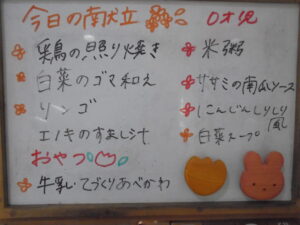 今日の献立
鶏の照り焼き
白菜のゴマ和え
リンゴ
エノキのすまし汁
おやつ
牛乳・てづくりあべかわ
0才児
米粥
ササミの南瓜ソース
にんじんしりしり風
白菜スープ